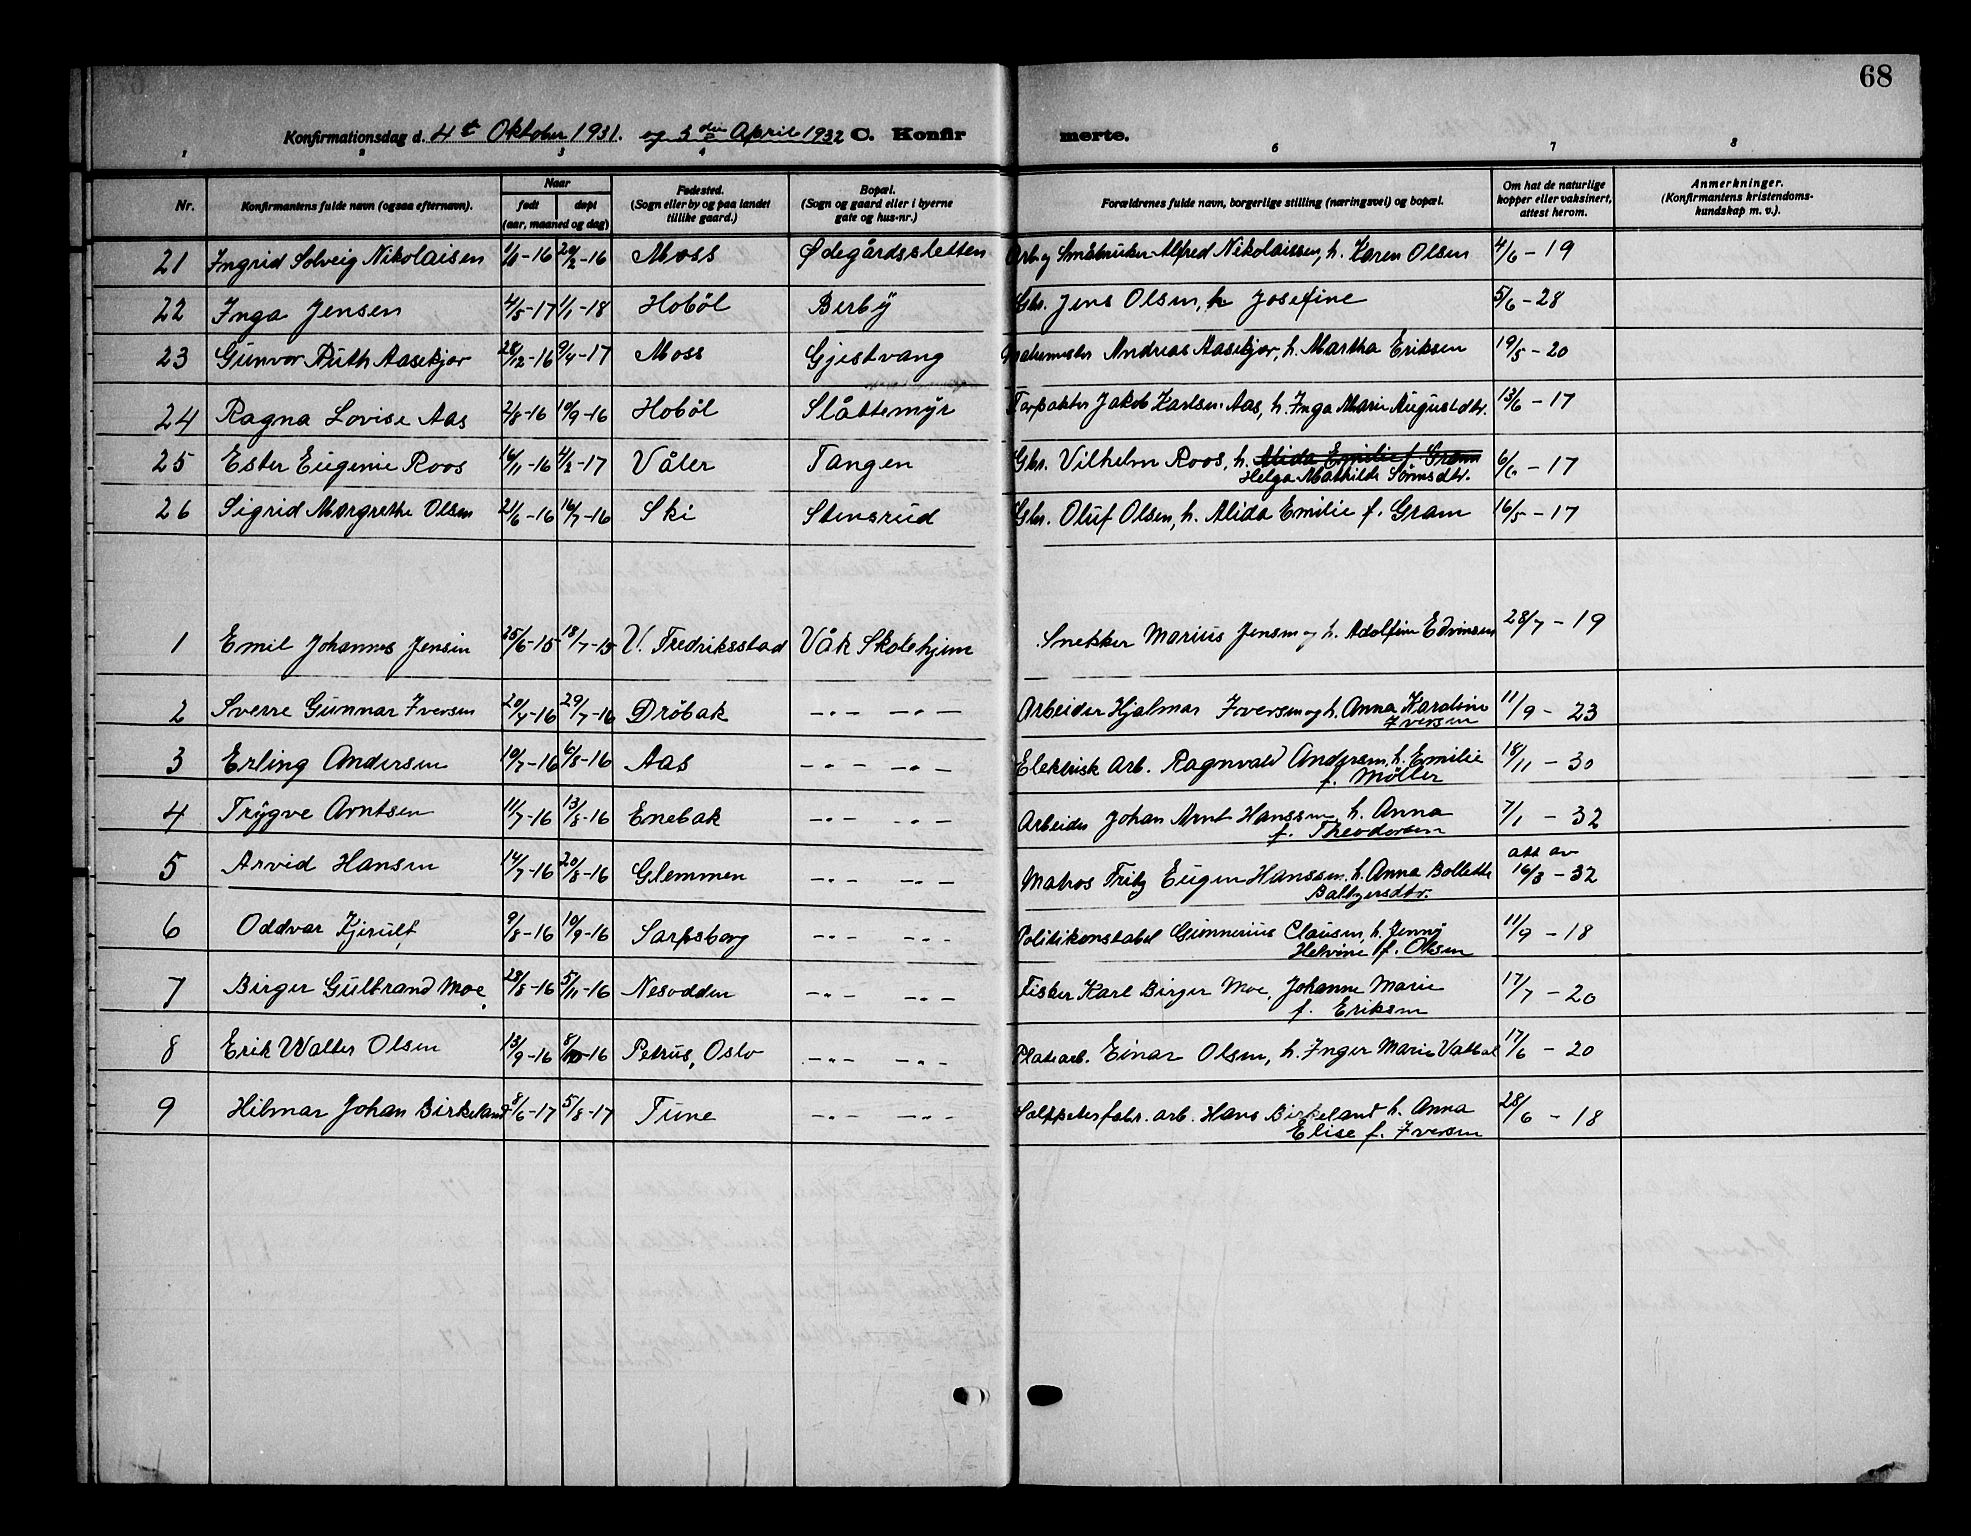 68
Konfirmationsdag d. 4t Oktober 1931. og 3 die April 1932 C. Konfir merte.
1 2 3 4 6 7 8
Nr. Konfirmantens fulde navn (ogsaa efternavn). Naar født døpt (aar, maaned og dag) Fødested. (Sogn eller by og paa landet tillike gaard.) Bopæl. (Sogn og gaard eller i byerne gate og hus-nr.) Forældrenes fulde navn, borgerlige stilling (næringsvei) og bopæl. Om hat de naturlige kopper eller vaksinert, attest herom. Anmerkninger. (Konfirmantens kristendoms-kundskap m. v.).
21 Ingrid Solveig Nikolaisen 20/2-16 Moss Ødegårdssletten Arb. og Småbruker Alfred Nikolaissen, h. Karen Olsen 4/6 - 19
22 Inga Jensen 4/5-17 1/1-18 Hobøl Berby Gbr. Jens Olsen, h Josefine 5/6 - 28
23 Gunvor Ruth Aasekjær 28/12-16 9/4-17 Moss Gjestvang Andreas Aasekjær, h. Martha Eriksen 19/5 - 20
24 Ragna Lovise Aas 2/8-16 10/9-16 Hobøl Slåttemyr Jakob Karlsen Aas, h. Inga Marie Augustdtr. 13/6 - 17
25 Ester Eugenie Roos 16/11-16 4/2-17 Våler Tangen Gbr. Vilhelm Roos, h. Alida Emilie f. Gram
Helga Mathilde 6/6 - 17
26 Sigrid Margrethe Olsen 21/6-16 16/7-16 Ski Stensrud Gbr. Oluf Olsen, h. Alida Emilie f. Gram 16/5 - 17
1 Emil Johannes Jensen 25/6-15 18/7-15 V. Fredriksstad Våk Skolehjem Snekker Marius Jensen og h. Adolfine Edvinsen 28/7 - 19
2 Sverre Gunnar Iversen 20/4-16 29/7-16 Drøbak -„- -„- Arbeider Hjalmar Iversen og h. Anna Karoline
Iversen 11/9 - 23
3 Erling Andersen 10/7-16 6/8-16 Aas -„- -„- Elektrisk arb. Ragnvald Andersen, h. Emilie
f. Møller 18/11 - 30
4 Trygve Arntsen 11/7-16 13/8-16 Enebak -„- -„- Arbeider Johan Arnt Hanssen, h. Anna
f. Theodorsen 7/1 - 32
5 Arvid Hansen 14/7-16 20/8-16 Glemmen -„- -„- Matros Fritz Eugen Hanssen, h. Anna Bollette
Baltzersdtr. att av
16/3 - 32
6 Oddvar Kjerulf 9/8-16 10/9-16 Sarpsborg -„- -„- Politikonstabel Gunnerius Clausen, h. Jenny
Helvine f. Olsen 11/9 - 18
7 Birger Gulbrand Moe 28/8-16 5/11-16 Nesodden -„- -„- Fisker Karl Birger Moe, Johanne Marie
f. Eriksen 17/7 - 20
8 Erik Walter Olsen 13/9-16 8/10-16 Petrus, Oslo -„- -„- Platearb. Einar Olsen, h. Inger Marie 17/6 - 20
9 Hilmar Johan Birkeland 8/6-17 5/8-17 Tune -„- -„- Salpeterfabr. arb. Hans Birkeland h. Anna
Elise f. Iversen 28/6 - 18